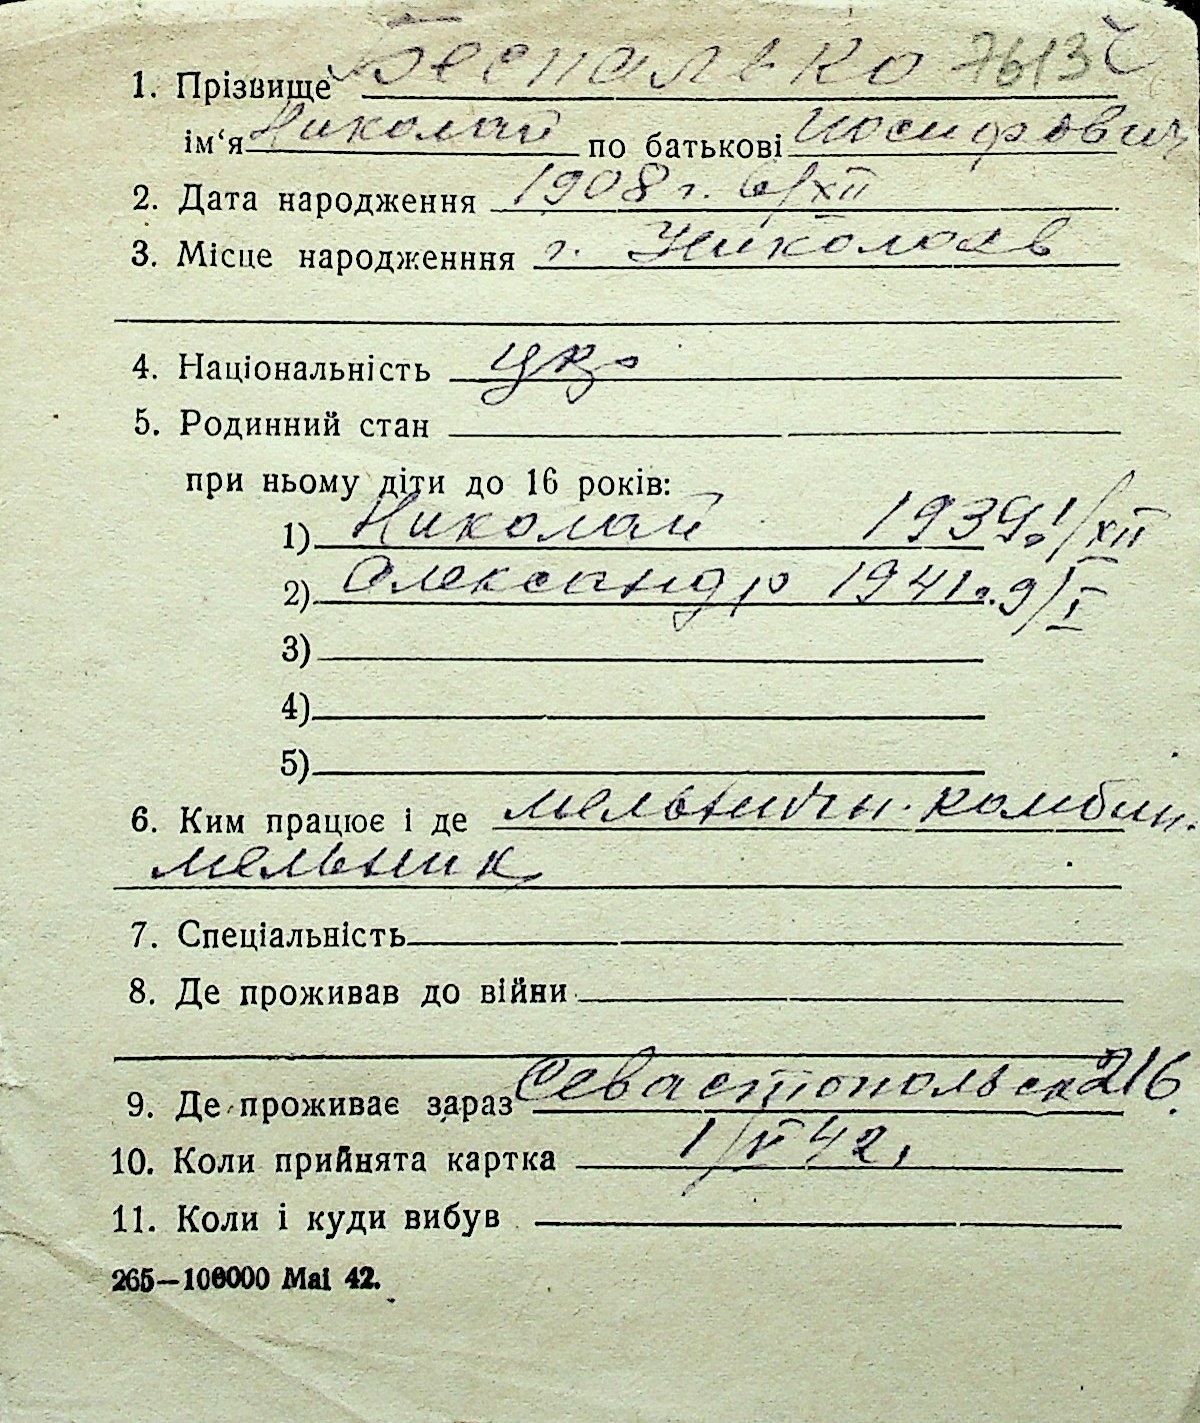 1. Прізвище Беспалько 7613
ім‘я Николай по батькові Иосифович
2. Дата народження 1908 г. 6/XII
3. Місце народженння г. Николаев
4. Національність укр
5. Родинний стан
при ньому діти до 16 років:
1) Николай 1939. 1/XII
2) Александр 1941г. 9/I
3)
4)
5)
6. Ким працює і де мельничн. комбин.
мельник
7. Спеціальність
8. Де проживав до війни
9. Де проживає зараз Севастопольск 216.
10. Коли прийнята картка 42.
11. Коли і куди вибув
265—100000 Mai 42.